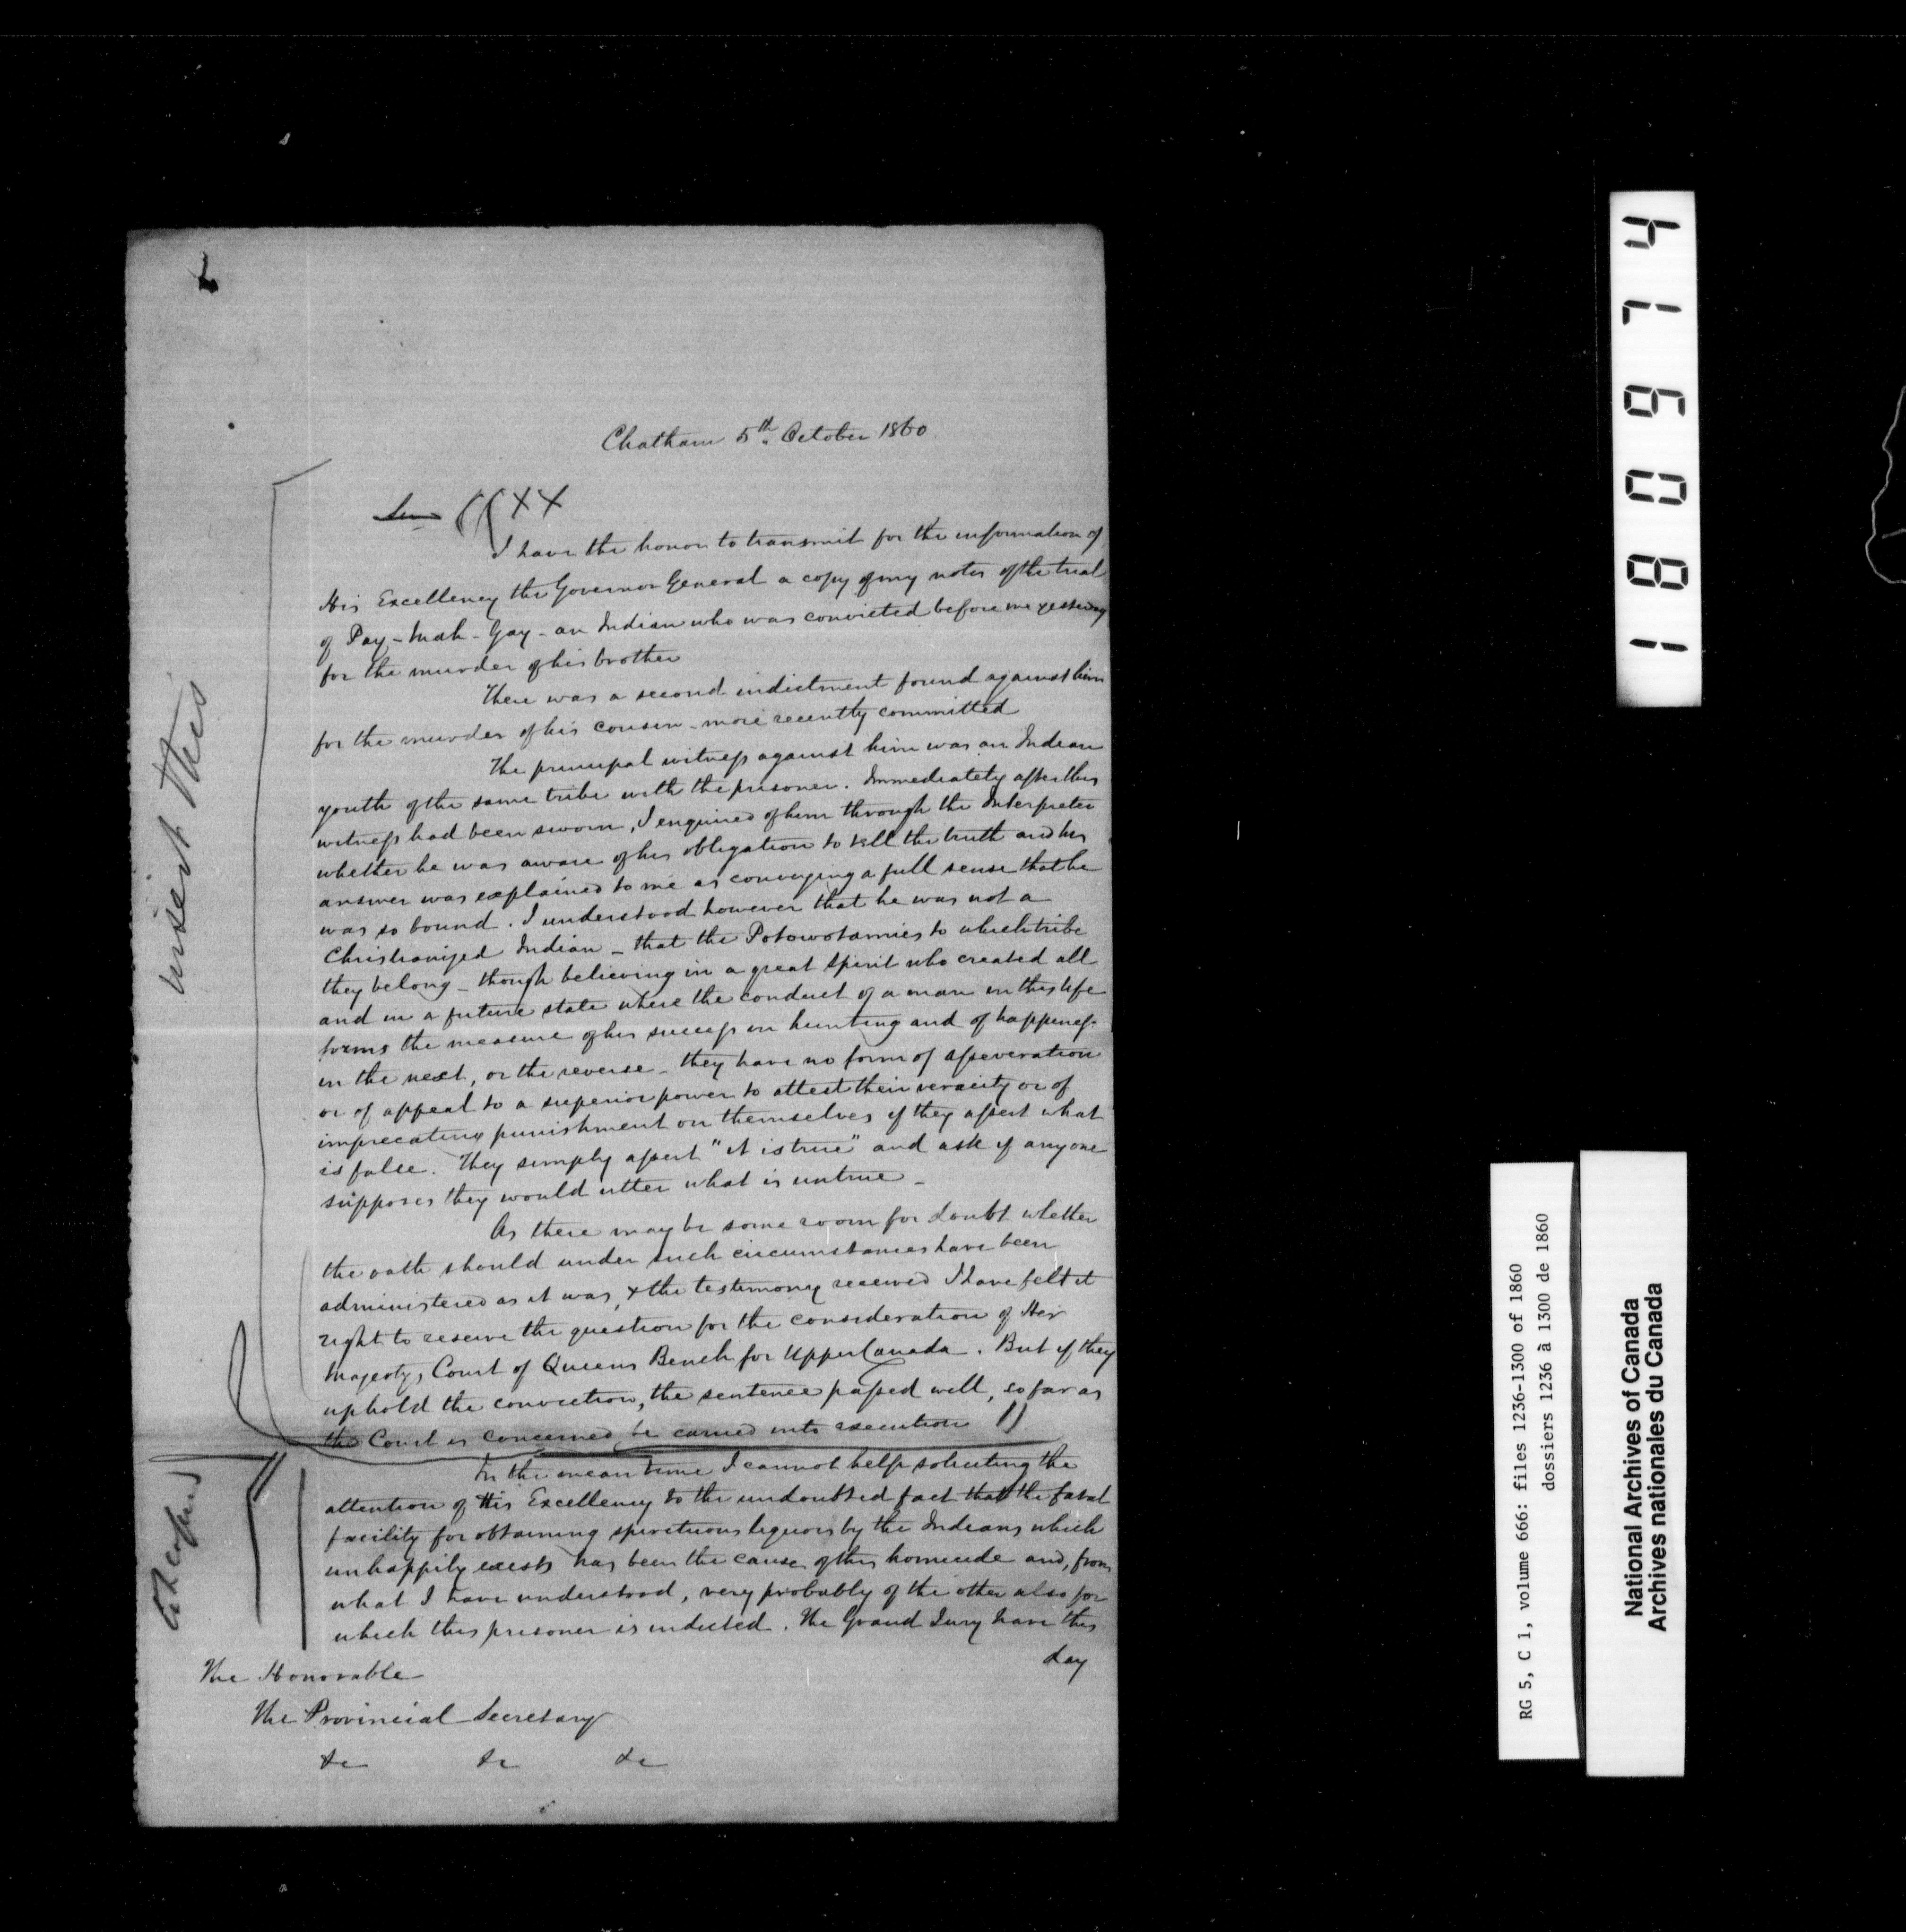 Chatham 5th October 1860
Sir
I have the honor to transmit for the information of
His Excellency the Governor General a copy of my notes of the trial
of Pay-Mah-Gay - an Indian who was convicted before me yesterday
for the murder of his brother
There was a second indictment found against him
for the murder of his cousin - more recently committed
The principal witness against him was an Indian
youth of the same tribe with the prisoner. Immediately after this
witness had been sworn, I enquired of him through the Interpreter
whether he was aware of his obligation to tell the truth and his
answer was explained to me as conveying a full sense that he
was so bound. I understood however that he was not a
Christianized Indian - that the Potowotamies to which tribe
they belong - though believing in a great spirit who created all
and in a future state where the conduct of a man in this life
forms the measure of his success in hunting and of happiness
in the next, or the reverse - they have no form of asseveration
or of appeal to a superior power to attest their veracity or of
imprecating punishment on themselves if they assert what
is false. They simply assert "it is true" and ask if any one
supposes they would utter what is untrue -
As there may be some room for doubt whether
the oath should under such circumstances have been
administered as it was, & the testimony received I have felt it
right to reserve the question for the consideration of Her
Majestys Court of Queens Bench for Upper Canada. But if they
uphold the conviction, the sentence passed will, so far as
the Court is concerned be carried into execution
In the mean time I cannot help soliciting the
attention of His Excellency to the undoubted fact that the fatal
facility for obtaining spirituous liquors by the Indians which
unhappily exists has been the cause of this homicide and, from
what I have understood, very probably of the other also for
which this prisoner is indicted. The Grand Jury have this
day
The Honorable
The Provincial Secretary
&c &c &c
insert this
180974
RG 5, C 1, volume 666: files 1236-1300 of 1860
dossiers 1236 à 1300 de 1860
National Archives of Canada
Archives nationales du Canada